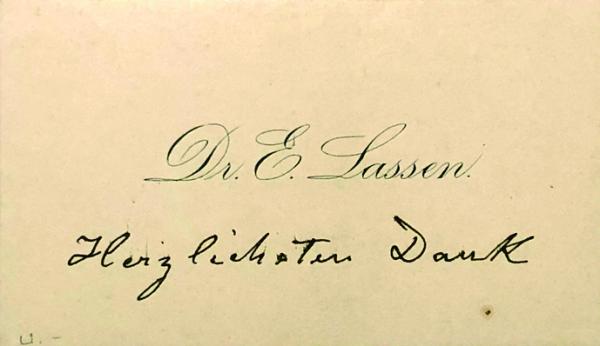 Dr. E. Lassen.
Herzlichsten Dank